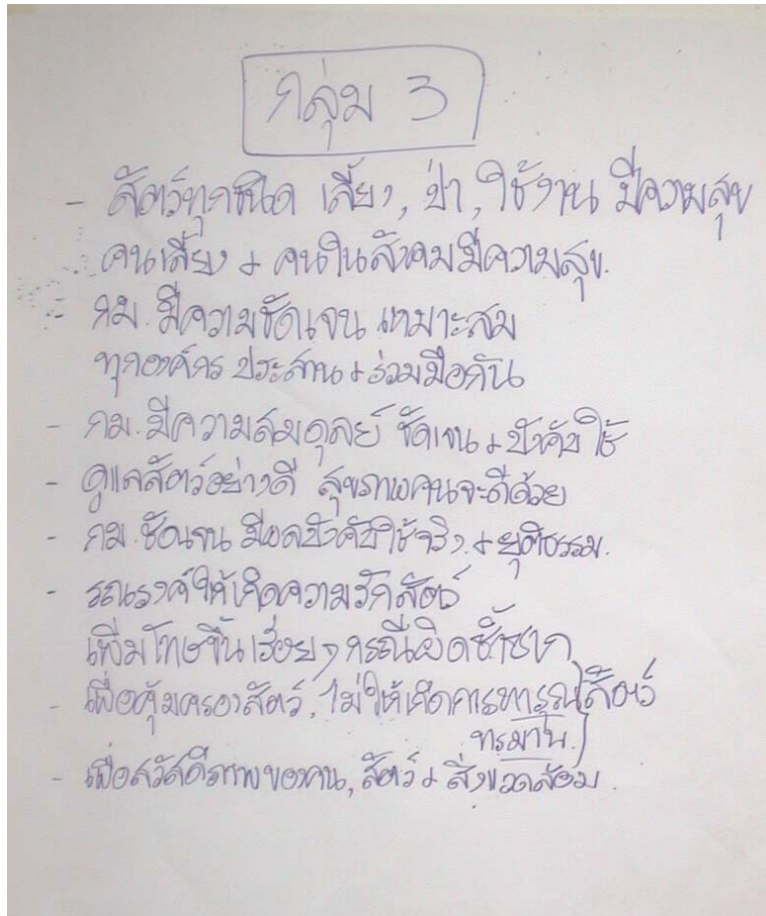 กลุ่ม 3
- สัตว์ทุกชนิด เลี้ยง, ป่า, ใช้งาน มีความสุข
คนเลี้ยง + คนในสังคมมีความสุข.
- กม. มีความชัดเจน เหมาะสม
ทุกองค์กร ประสาน + ร่วมมือกัน
- กม. มีความสมดุลย์ ชัดเจน + บังคับใช้
- ดูแลสัตว์อย่างดี สุขภาพคนจะดีด้วย
- กม. ชัดเจน มีผลบังคับใช้จริง + ยุติธรรม.
- รณรงค์ให้เกิดความรักสัตว์
เพิ่มโทษขึ้นเรื่อยๆ กรณีผิดซ้ำซาก
- เพื่อคุ้มครองสัตว์, ไม่ให้เกิดการทารุณสัตว์
ทรมาน
- เพื่อสวัสดิภาพของคน, สัตว์ + สิ่งแวดล้อม.